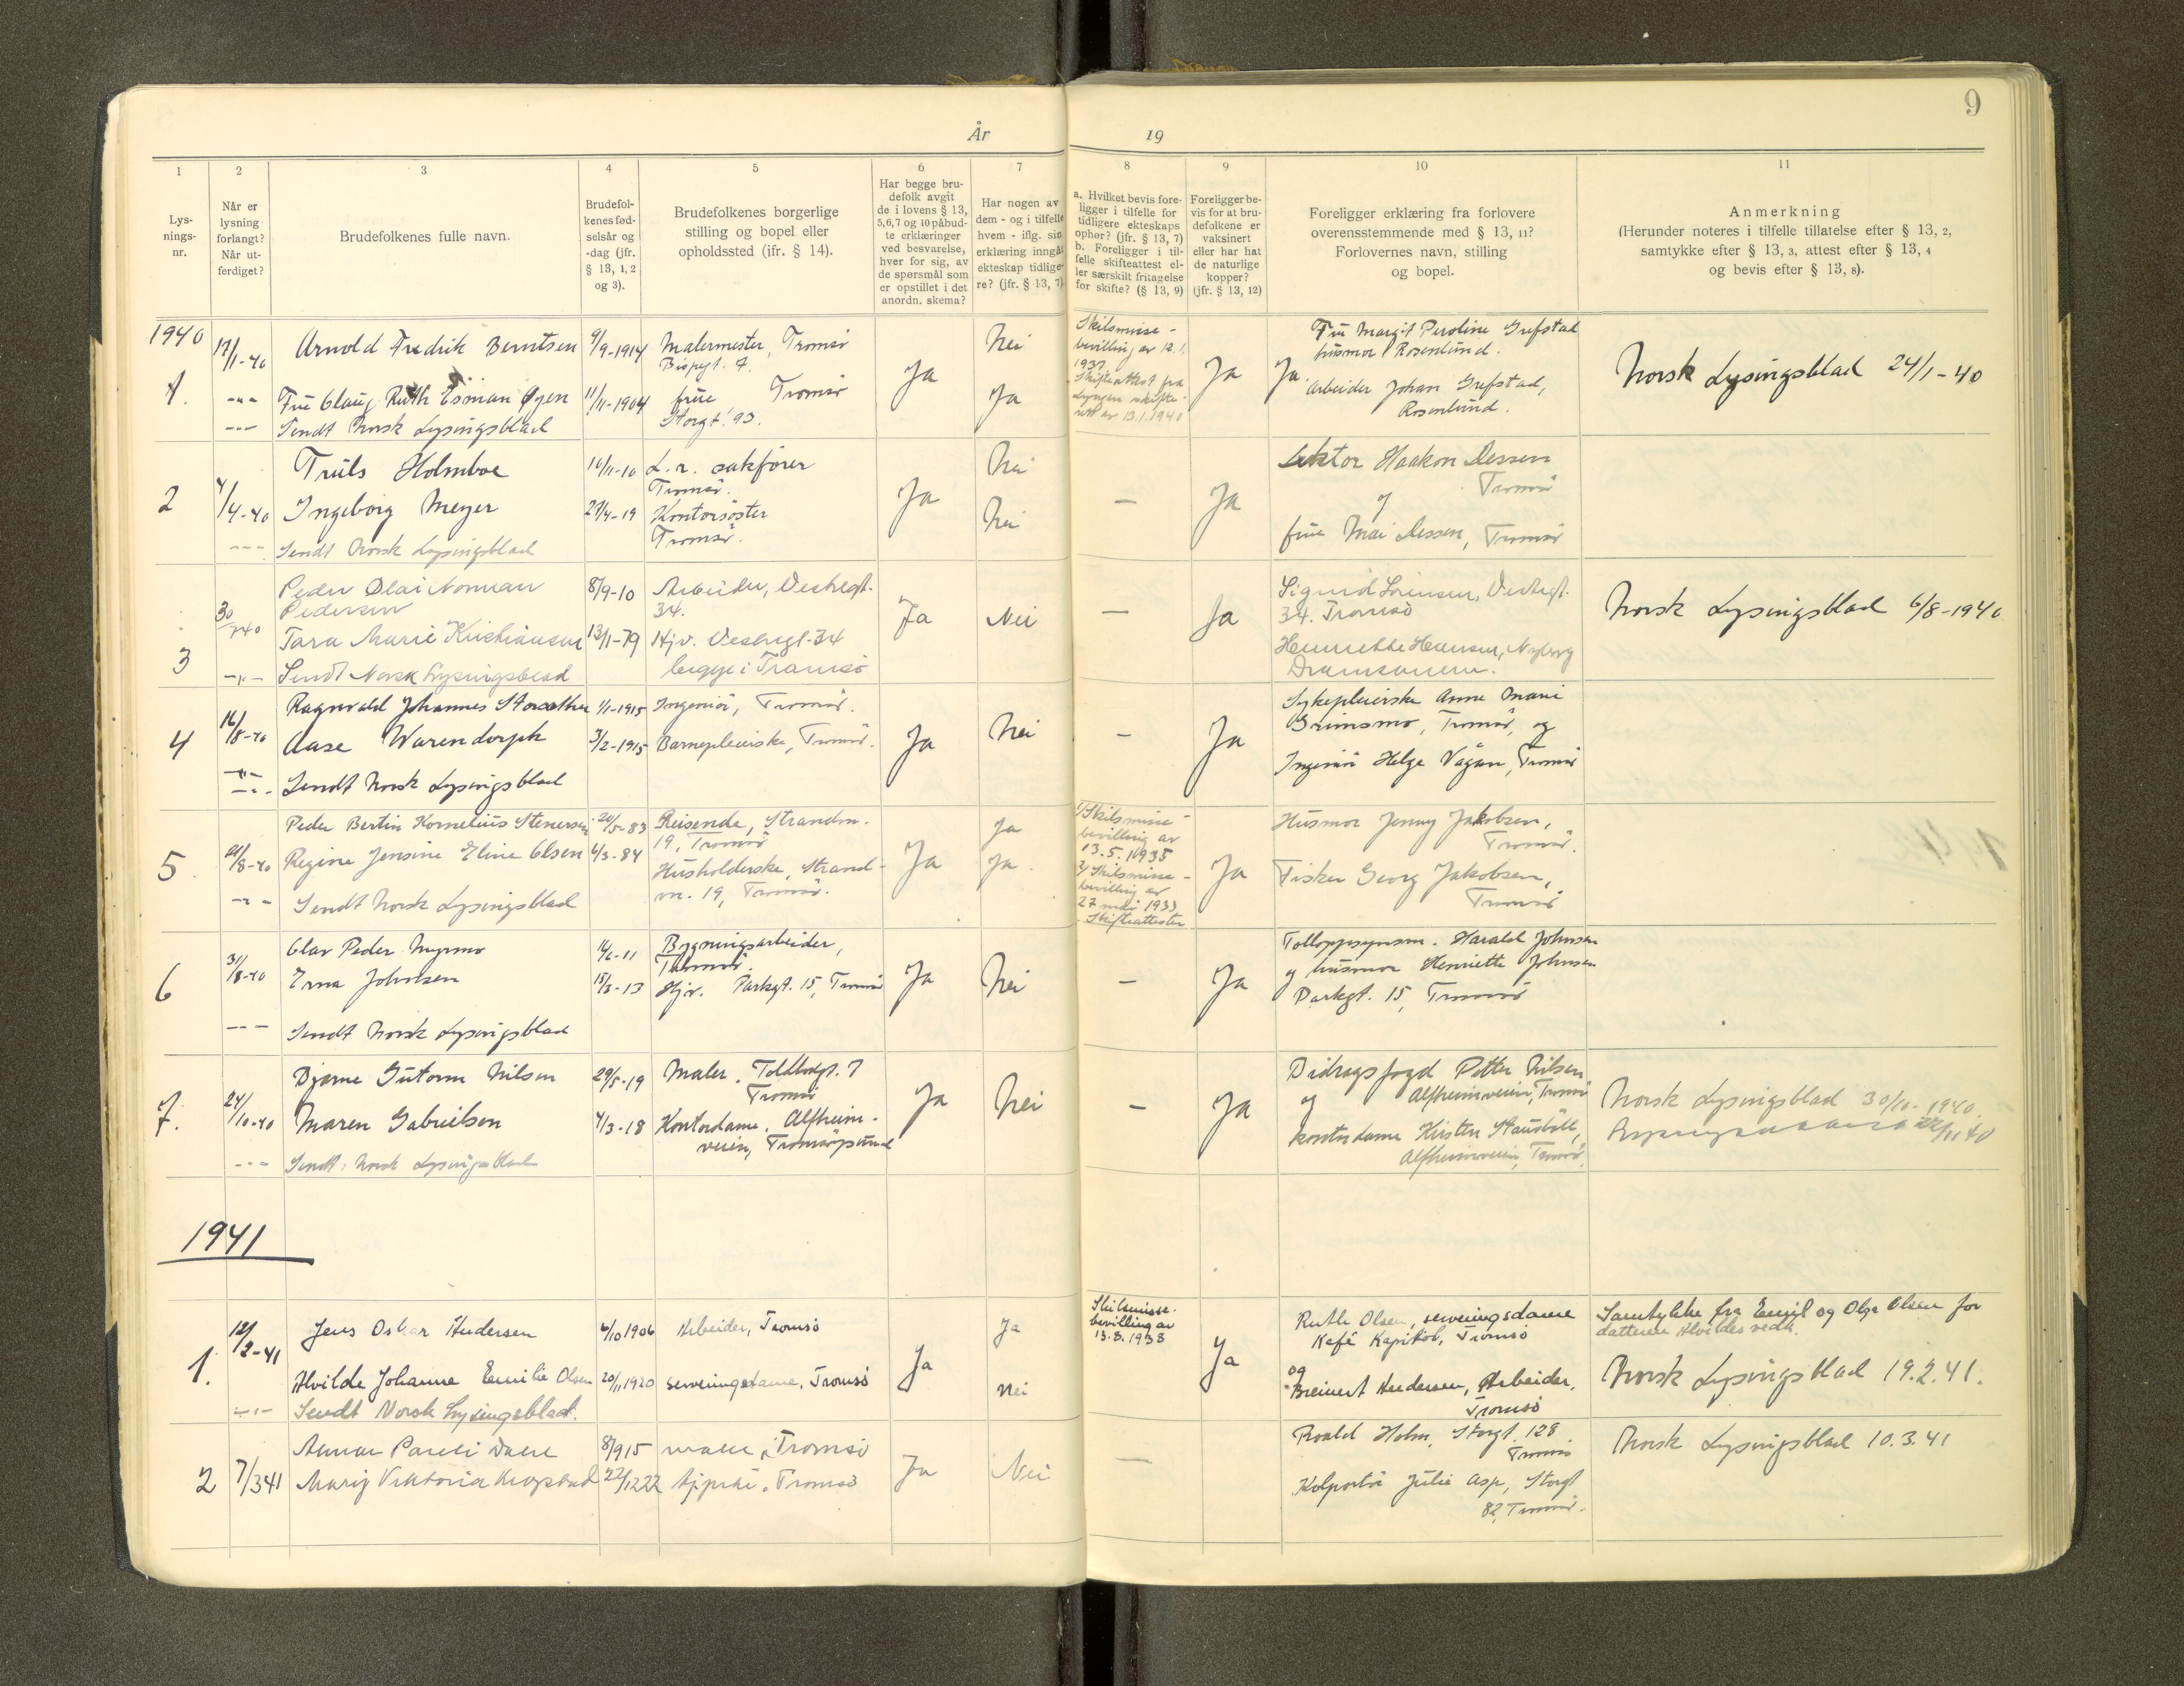 9
År 19
1
2
3
4
5
6
7
8
9
10
11
Lys-
nings-
nr.
Når er
lysning
forlangt?
Når ut-
ferdiget?
Brudefolkenes fulle navn.
Brudefol-
kenes fød-
selsår og
-dag (jfr.
§ 13, 1, 2
og 3).
Brudefolkenes borgerlige
stilling og bopel eller
opholdssted (ifr. § 14).
Har begge bru-
defolk avgit
de i lovens § 13,
5,6,7 og 10 påbud-
te erklæringer
ved besvarelse,
hver for sig, av
de spørsmål som
er opstillet i det
anordn. skema?
Har nogen av
dem - og i tilfelle
hvem - iflg. sin
erklæring inngåt
ekteskap tidlige-
re? (jfr. § 13, 7)
a. Hvilket bevis fore-
ligger i tilfelle for
tidligere ekteskaps
ophør? (jfr. § 13, 7)
b. Foreligger i til-
felle skifteattest el-
ler særskilt fritagelse
for skifte? (§ 13, 9)
Foreligger be-
vis for at bru-
defolkene er
vaksinert
eller har hat
de naturlige
kopper?
(jfr. § 13, 12)
Foreligger erklæring fra forlovere
overensstemmende med § 13, 11?
Forlovernes navn, stilling
og bopel.
Anmerkning
(Herunder noteres i tilfelle tillatelse efter § 13, 2,
samtykke efter § 13, 3, attest efter § 13, 4
og bevis efter § 13, 8).
1940
1.
17/1-40
Arnold Fredrik Berntsen
9/9-1914
Malermester, Tromsö
Bispegt. 7.
Fru Olaug Ruth Esman Øyen
11/11-1904
frue Tromsö
Storgt. 93.
Sendt Norsk Lysingsblad
Ja
Nei
Ja
Skilsmisse-
bevilling av 12.1.
1937.
Skifteattest fra
Lyngen skifte-
rett av 13.1.1940
Ja
Ja
Fru Margit Peroline Grefstad
husmor Rosenlund.
Arbeider Johan Grefstad,
Rosenlund.
Norsk Lysingsblad 24/1-40
2
4/4-40
Truls Holmboe
10/11-10
L.r. sakfører
Tromsö.
Ingeborg Meyer
27/4-19
Kontorsöster
Tromsö.
Sendt Norsk Lysingsblad
Ja
Nei
Nei
—
Ja
Lektor Haakon Dessen
Tromsö
og
frue Mai Dessen, Tromsö
3
30/7 40
Peder Olai Norman
Pedersen
8/9-10
Arbeider, Vestregt.
34.
Tara Marie Kristiansen
13/1-79
Hjv. Vestregt. 34
begge i Tromsö
Sendt Norsk Lysingsblad
Ja
Nei
—
Ja
Sigurd Sörensen, Vestregt.
34. Tromsö
Henriette Hansen, Nyberg
Norsk Lysingsblad 6/8-1940
4
16/8-40
Ragnvald Johannes Storsæther
1/1-1915
Ingeniör, Tromsö.
Aase Warendorph
3/2-1915
Barnepleierske, Tromsö.
Sendt Norsk Lysingsblad
Ja
Nei
—
Ja
Sykepleierske Anne Marie
Grimsmo, Tromsö, og
Ingeniör Helge Vågan, Tromsö
5
21/8-40
Peder Bertin Kornelius Stenersen
20/5-83
Reisende, Strandv.
19, Tromsö
Regine Jensine Eline Olsen
6/3-84
Husholderske, Strand-
vn. 19, Tromsö.
Sendt Norsk Lysingsblad
Ja
Ja
Ja
1/ Skilsmisse-
bevilling av
13.5.1935
2/ Skilsmisse-
bevilling av
27 mai 1933
Skifteattester
Ja
Husmor Jenny Jakobsen,
Tromsö.
Fisker Georg Jakobsen,
Tromsö
6
31/8-40
Olav Peder Myrmo
14/6-11
Bygningsarbeider,
Tromsö.
Erna Johnsen
15/3-13
Hjv. Parkgt. 15, Tromsö
Sendt Norsk Lysingsblad
Ja
Nei
—
Ja
Tolloppsynsm. Harald Johnsen
og husmor Henriette Johnsen
Parkgt. 15, Tromsö
7.
24/10-40
Bjarne Gutorm Nilsen
29/5-19
Maler, Tollbodgt. 7
Tromsö
Maren Gabrielsen
4/3-18
Kontordame, Alfheim-
veien, Tromsöysund
Sendt: Norsk Lysingsblad
Ja
Nei
—
Ja
Bidragsfogd Petter Nilsen
og Alfheimveien, Tromsö
kontordame Kirsten Stausböll,
Alfheimveien, Tromsö.
Norsk Lysingsblad 30/10-1940.
1941
1.
12/2-41
Jens Oskar Andersen
6/10 1906
Arbeider, Tromsö
Alvilde Johanne Emilie Olsen
20/11 1920
serveringsdame, Tromsö
Sendt Norsk Lysingsblad.
Ja
Ja
Nei
Skilsmisse-
bevilling av
13.8.1938
Ja
Ruth Olsen, serveringsdame
Kafé Kapitol, Tromsö
og
Breinert Andersen, Arbeider,
Tromsö
Samtykke fra Emil og Olga Olsen for
datteren Alvildes vedk.
Norsk Lysingsblad 19.2.41.
2
7/3 41
8/9 15
Tromsö
Marig Viktoria
22/12 22
Tromsö
Ja
Nei
—
Roald Holm, Storgt. 128
Tromsö
Kolportör Julie Asp, Storgt
82, Tromsö.
Norsk Lysingsblad 10.3.41